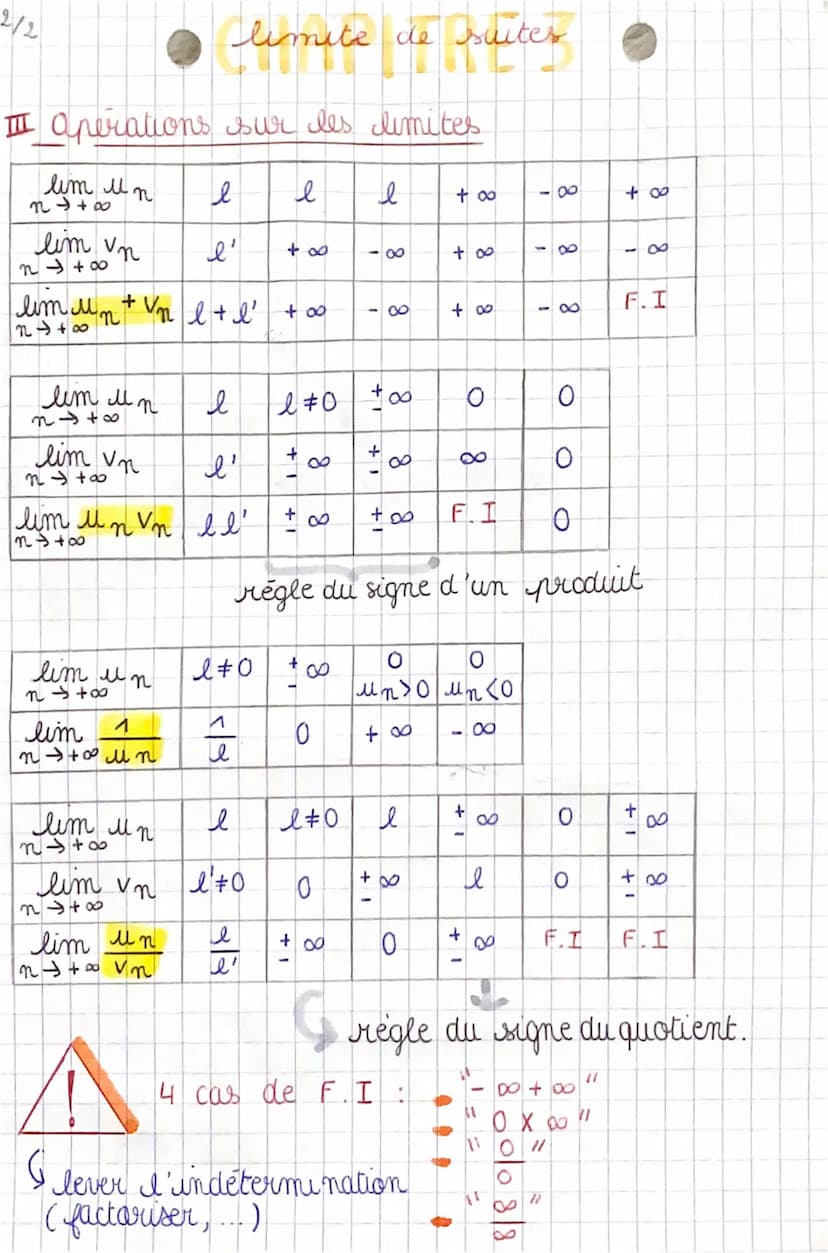 2/2
limite de suites
CHAPITRE 3
III Opérations sur les limites
lim un n→+∞ | l | l | l | +∞ | -∞ | +∞
lim vn n→+∞ | l' | +∞ | -∞ | +∞ | -∞ | -∞
lim un + vn n→+∞ | l + l' | +∞ | -∞ | +∞ | -∞ | F.I
lim un n→+∞ | l | l≠0 | ±∞ | 0 | 0
lim vn n→+∞ | l' | ±∞ | ±∞ | ∞ | 0
lim un vn n→+∞ | l l' | ±∞ | ±∞ | F.I | 0
régle du signe d'un produit
lim un n→+∞ | l≠0 | ±∞ | 0 un>0 | 0 un<0
lim 1/un n→+∞ | 1/l | 0 | +∞ | -∞
lim un n→+∞ | l | l≠0 | l | ±∞ | 0 | ±∞
lim vn n→+∞ | l'≠0 | 0 | ±∞ | l | 0 | ±∞
lim un/vn n→+∞ | l/l' | ±∞ | 0 | ±∞ | F.I | F.I
règle du signe du quotient.
! 4 cas de F.I :
"-∞ + ∞"
"0 X ∞"
"0/0"
"∞/∞"
lever l'indétermination
(factoriser, ...)